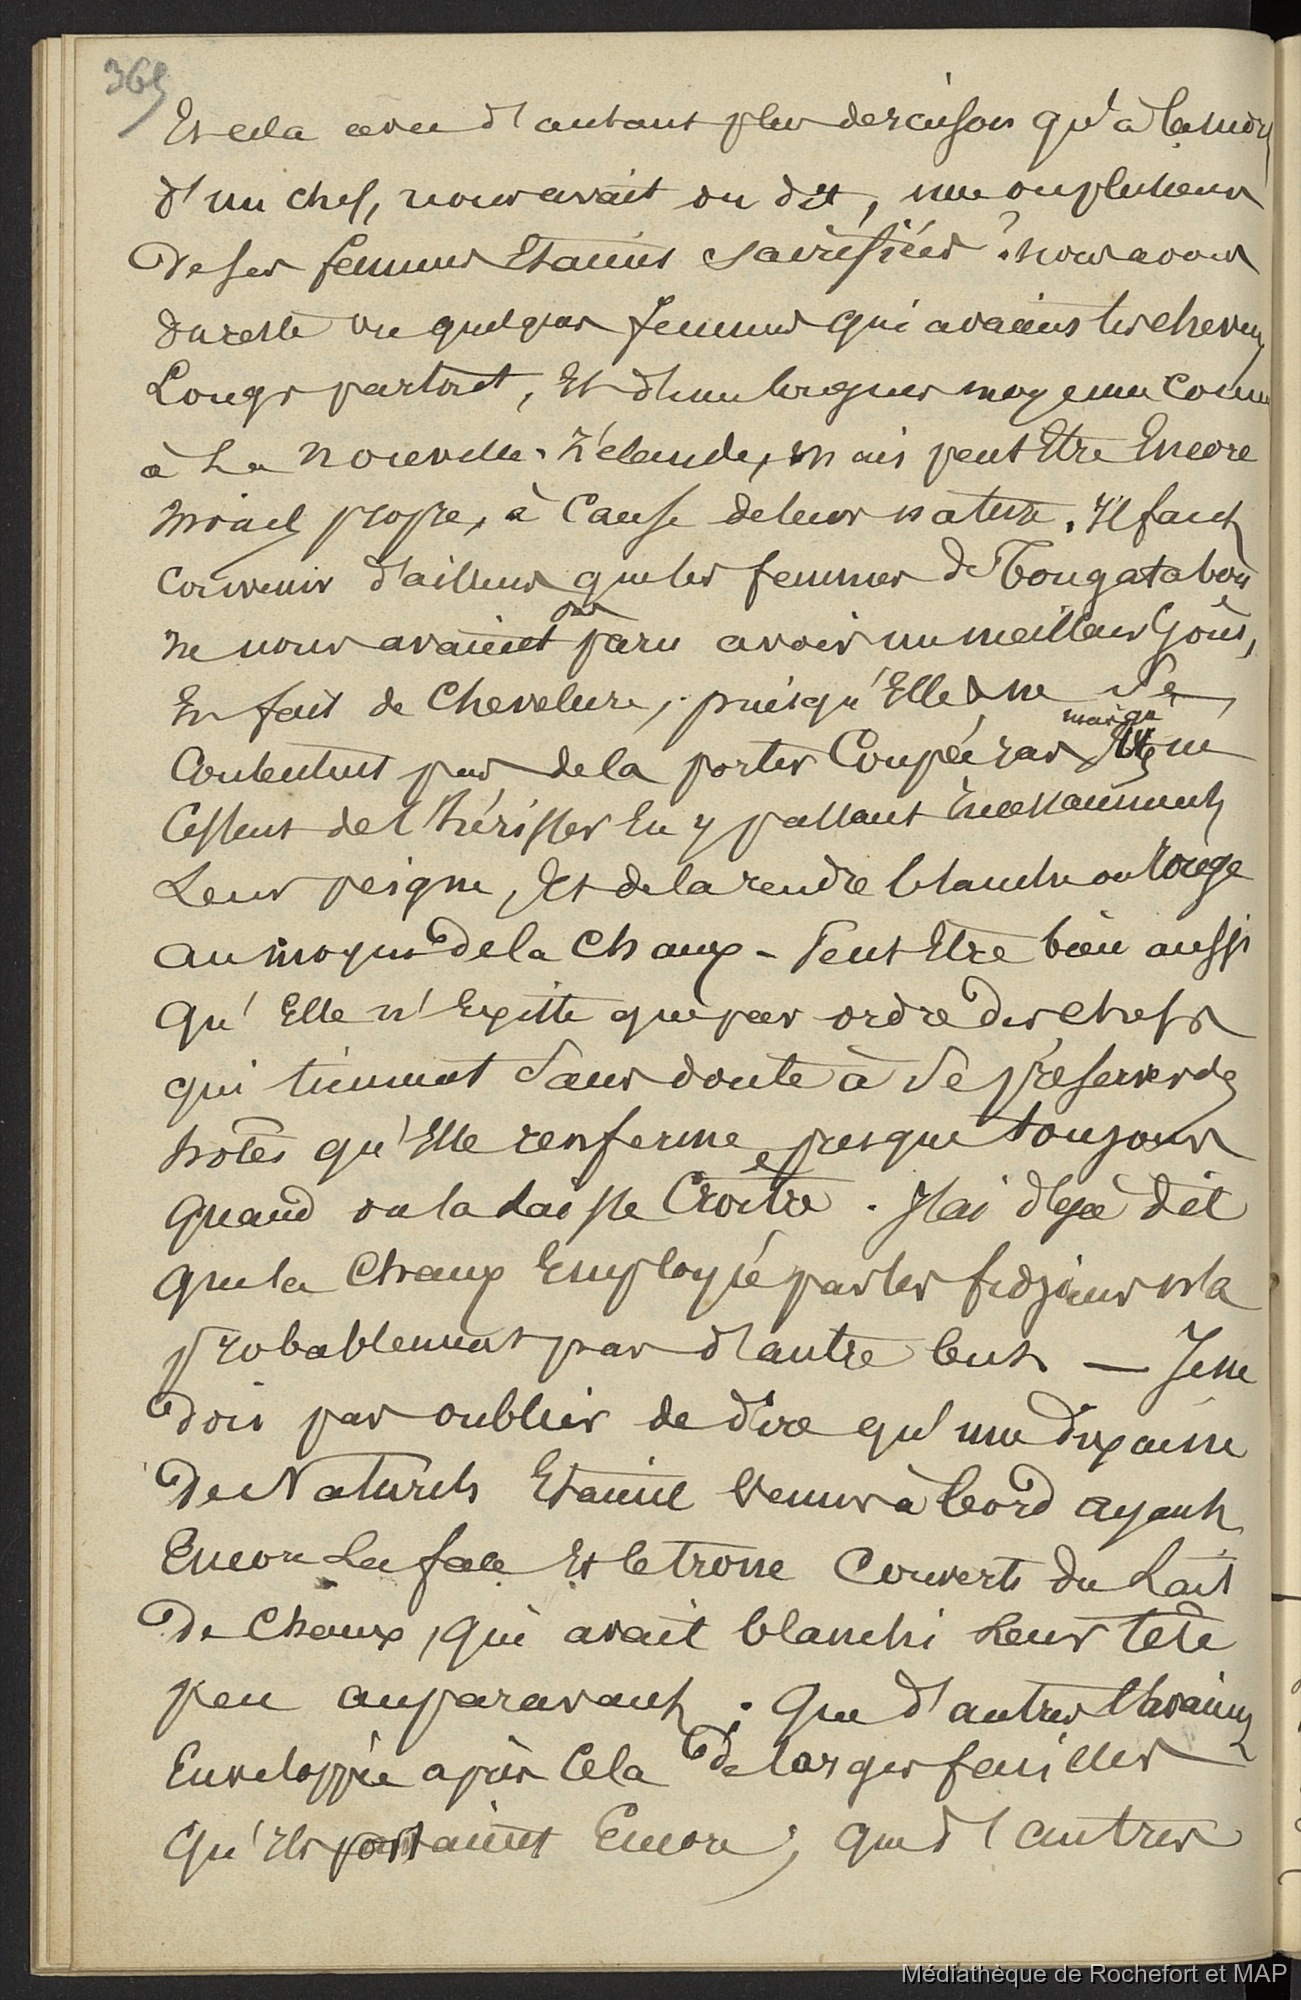 365
Et cela avec d'autant plus de raison qu'à la mort
d'un chef, nous avait on dit, une ou plusieurs
de ses femmes Etaient sacrifiées. nous avons
du reste vu quelques femmes qui avaient les cheveux
Longs partout, Et d'une longueur moyenne comme
à La Nouvelle-Zélande, mais peut Etre Encore
moins propre, à Cause de leur nature. Il faut
convenir d'ailleurs que les femmes de Tongatabou
pas
ne nous avaient paru avoir un meilleur Goût,
En fait de Chevelure, puisqu'Elles ne se
mais qu'
Contentent pas de la porter Coupée ras, ne
Cessent de l'hérisser En y passant incessamment
Leur peigne, Et de la rendre blanche ou rouge
au moyen de la Chaux - Peut Etre bien aussi
qu'Elle n'Existe que par ordre des chefs
qui tiennent Sans doute à Se préserver des
hôtes qu'Elle renferme presque toujours
quand on la Laisse Croître. J'ai déjà dit
que la Chaux Employée par les fidjiens n'a
probablement pas d'autre but — Je ne
dois pas oublier de dire qu'une dixaine
de Naturels Etaient venus à bord ayant
Encore La face Et le trone Couverts du Lait
de Chaux, qui avait blanchi Leur tête
peu auparavant. Que d'autres l'avaient
Enveloppée après Cela de larges feuilles
qu'ils portaient Encore; que d'autres
Médiathèque de Rochefort et MAP